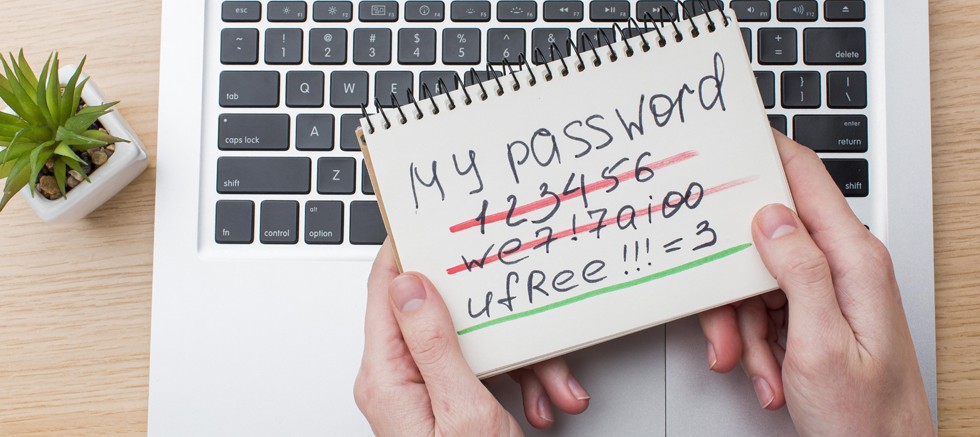 esc F1 F2 F3 F4 F5 F6 F7 F8
~ ` ! 1 @ 2 # 3 $ 4 % 5 ^ 6 & + = delete
tab Q W E } ] | \
caps lock A enter return
shift Z shift
fn control alt option
My password
123456
we7!7aioo
ufRee!!!=3